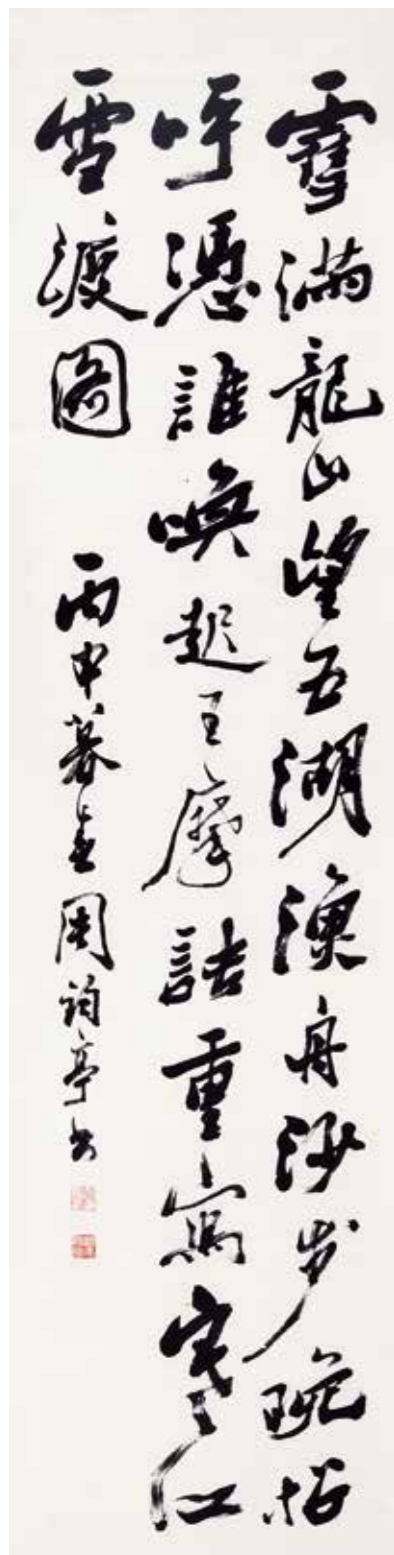 雪滿龍山望五湖漁舟沙步晚相
呼憑誰喚起王摩詰重寫寒江
雪渡圖
丙申暮春周詢亭書